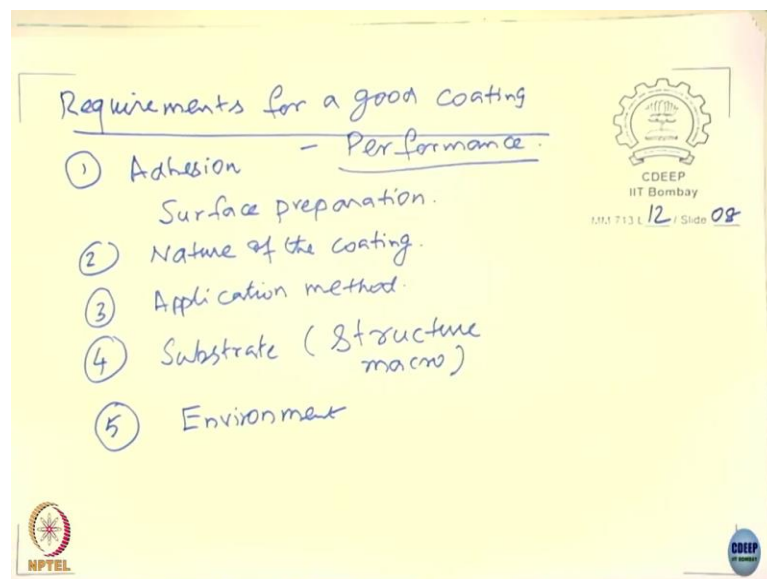 Requirements for a good coating
- Performance.
① Adhesion
Surface preparation.
② Nature of the coating.
③ Application method.
④ Substrate (Structure
macro)
⑤ Environment
CDEEP
IIT Bombay
MM 713 L 12 / Slide 08
NPTEL
CDEEP
IIT BOMBAY